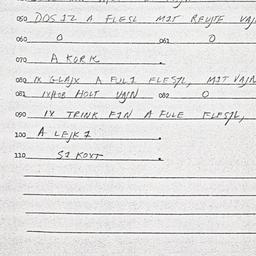 050 DOS IZ A FLESL MIT ROJTE VAJ
060 O 061 O
070 A KORK .
080 IX GLAJX A FULI FLESJL, MIT VAJN
081 IX HOB HOLT VAJN 082 O
090 IX TRINK FIN A FULE FLESJL,
100 A LEJKI .
110 SI KOXT .